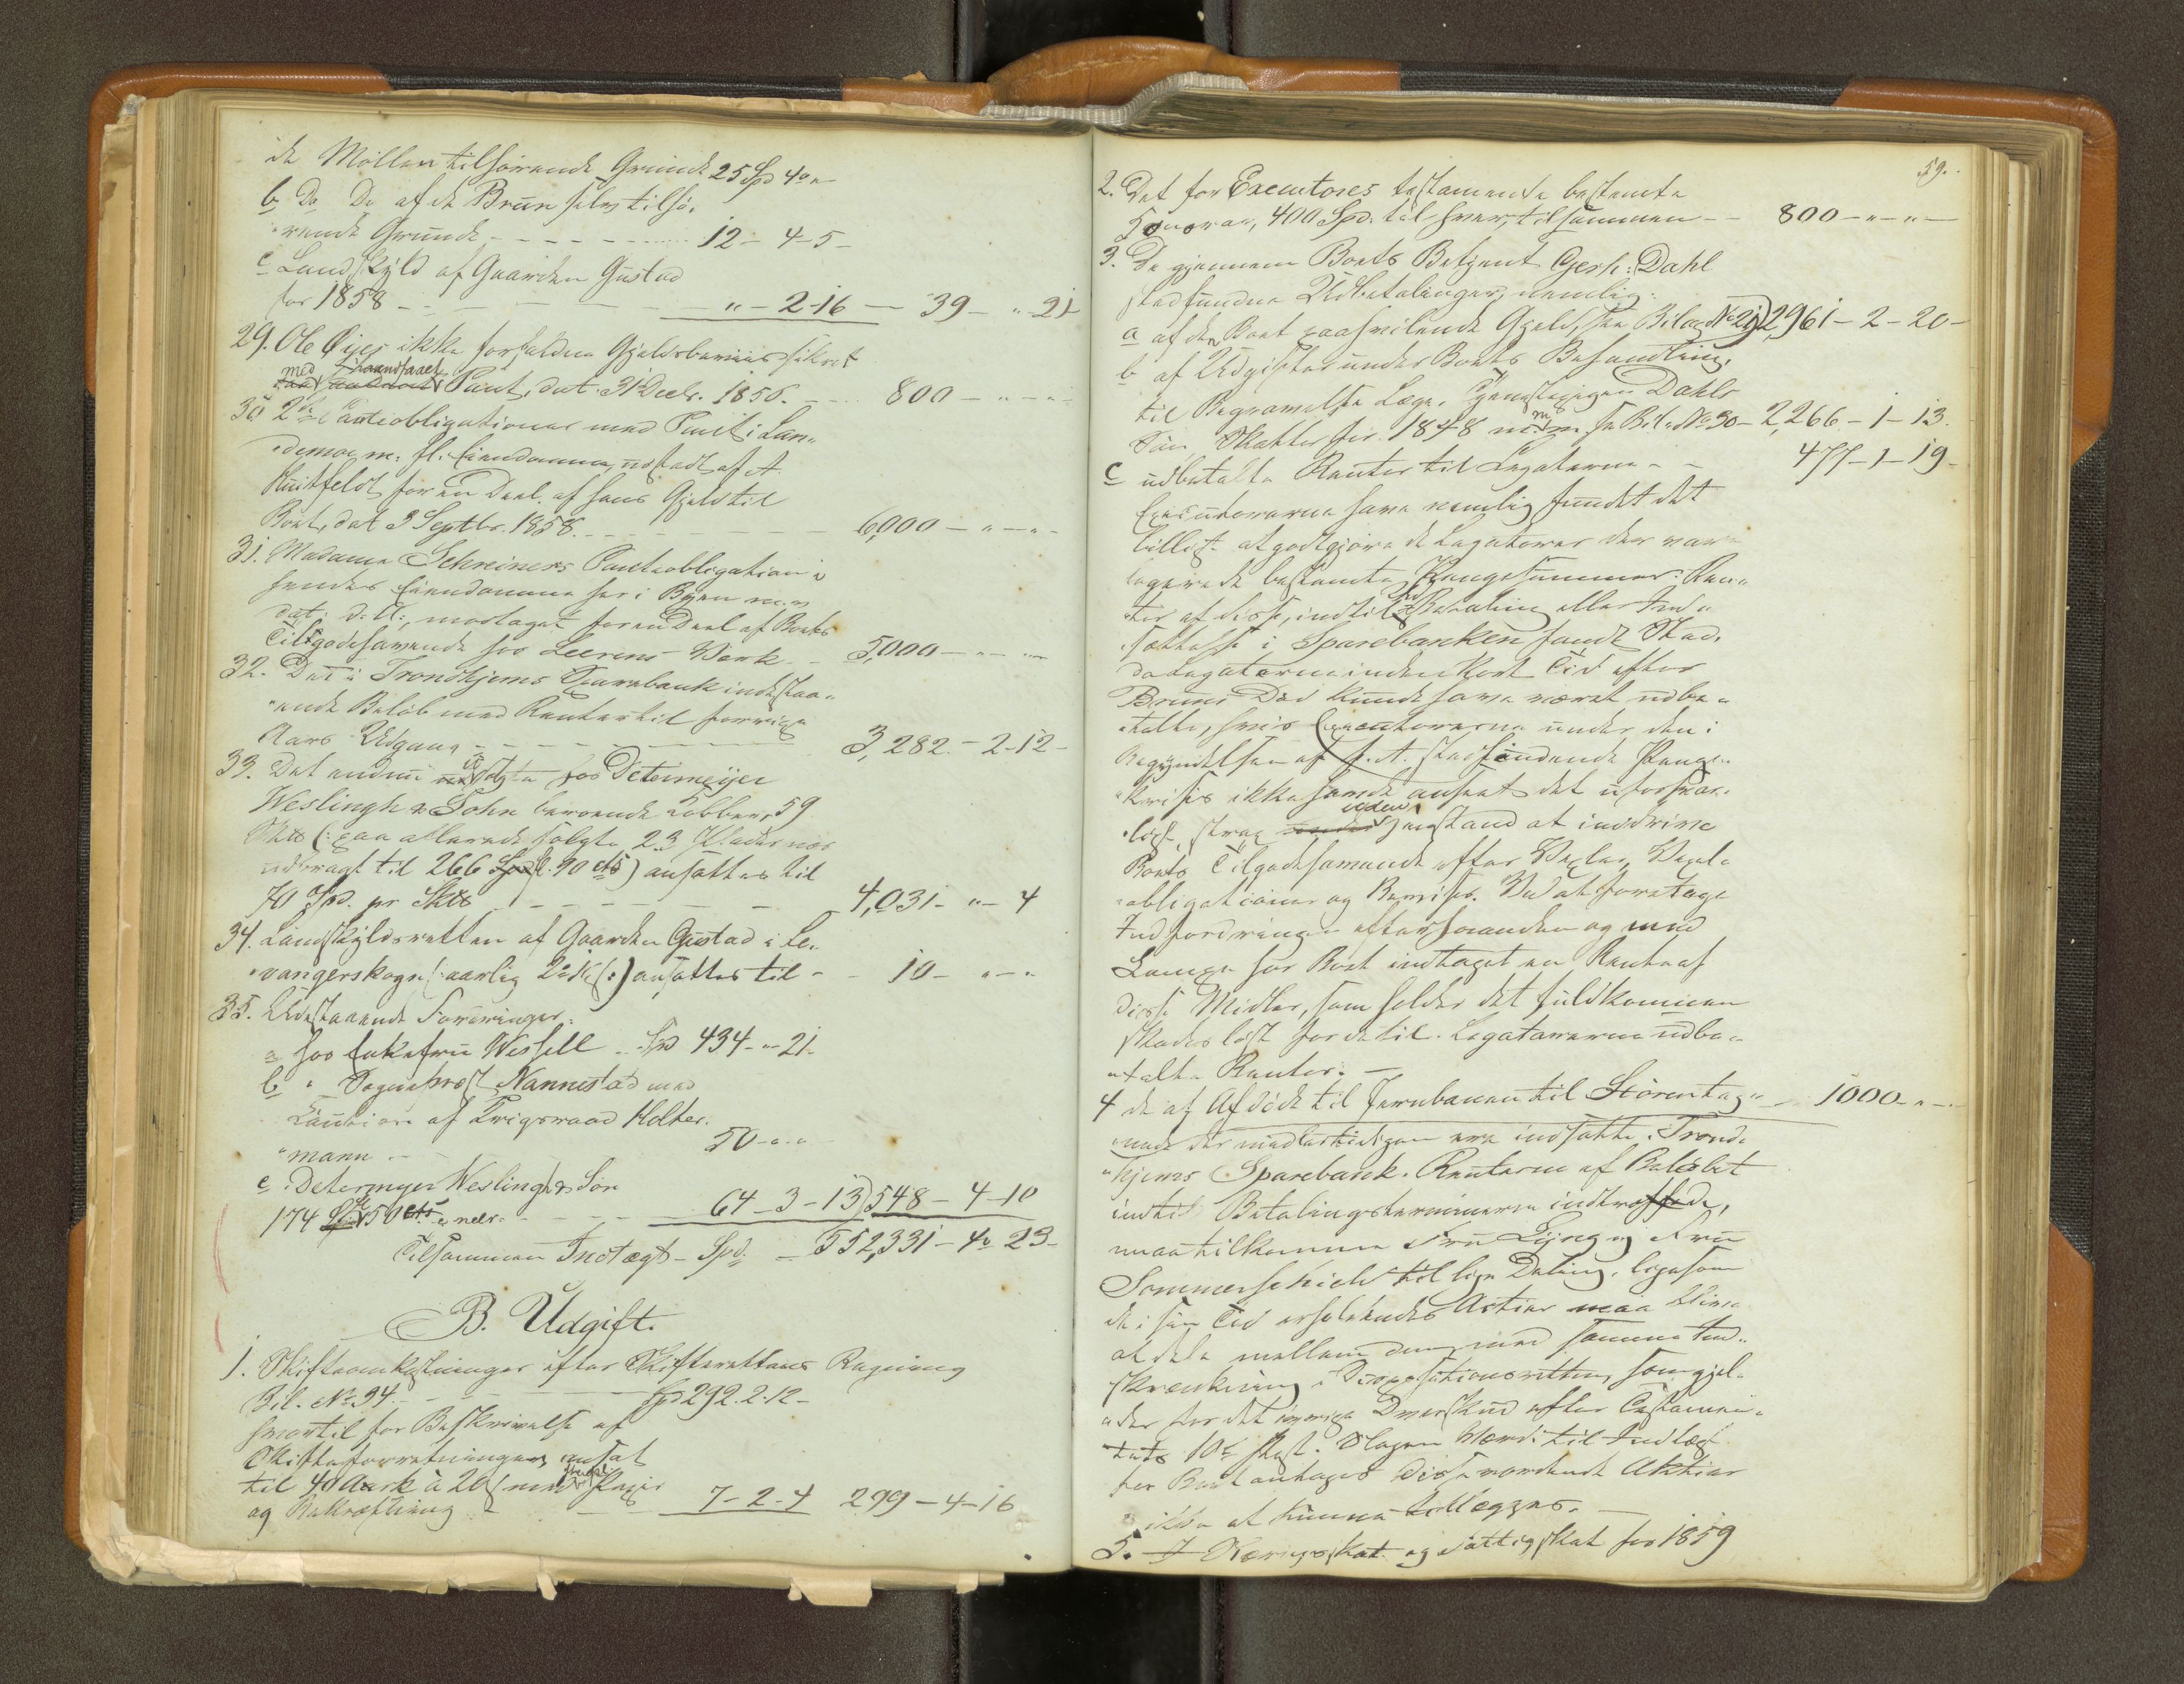 de Møllen tilhørende Grunde 25 Spd 4 " "
b Do Do af de Brun selv tilhø-
rende Grunde - - - - - 12 - 4 - 5 -
c Landskyld af Gaarden Gustad
for 1858 - - " - 2 - 16 - 39 - " - 21
29. Ole Øyes ikke forfaldne Gjeldsbeviis sikret
med haandfaaet Pant, dat. 31 Decbr. 1856. - 800 - " - " -
30 2de Panteobligationer med Pant i Lan-
demoe m: fl. Eiendomme, udstedt af A.
Huitfeldt for en Deel af hans Gjeld til
Boet, dat 3 Septbr. 1858. - - - 6,000 - " - " -
31. Madame Schreiners Panteobligation i
hendes Eiendomme her i Byen m. v
dat: d. A:, modtaget for en Deel af Boets
Tilgodehavende hos Leerens Værk - 5,000 - " - " -
32. Det i Trondhjems Sparebank indestaa-
ende Beløb med Renter til forrige
Aars Udgang - - - 3,282 - 2 - 12 -
33. Det endnu usolgte hos Determeyer
Weslingh & Sohn beroende Kobber, 59
Sktt (: paa allerede solgte 23
udbragt til 266 fl. 90 cts) ansættes til
70 Spd. pr Sktt - - - 4,031 - " - 4
34. Landskyldsretten af Gaarden Gustad i Le-
vangerskogn (: aarlig ansættes til - 10 - " - "
35. Udestaaende Fordringer:
a hos Enkefru Wessell - Spd 434 - " - 21 -
b " Sogneprest Nannestad med
Caution af Krigsraad Holter-
mann - - 50 - " - "
c Determeyer Weslingh & Søn
174 fl 50 cts - - - 64 - 3 - 13) 548 - 4 - 10
Tilsammen Indtægt - Spd. - 552,331 - 4 " 23 -
B. Udgift.
1. Skifteomkostninger efter Skifterettens Regning
Bil. No 34. - - Spd 292. 2. 12 -
hvortil for Beskrivelse af
Skifteforretningen, ansat
til 40 Aark à 20 s med stemplet Papir
og Bekræftning - - 7 - 2 - 4 299 - 4 - 16
59.
2. Det for Executores testamente bestemte
Honorar, 400 Spd. til hver, tilsammen - - 800 - " - " -
3. De gjennem Boets Betjent Gerh: Dahl
stedfundne Udbetalinger, nemlig:
a af den Boet paahvilende Gjeld, see Bilag No 29) 2,961 - 2 - 20 -
b af Udgifter under Boets Behandling,
til Begravelse Læge, Dahls
Løn Skatter for 1848 m. m. se Bil. No 30 - 2,266 - 1 - 13.
c udbetalte Renter til Legaterne - - 477 - 1 - 19 -
Executorerne have nemlig fundet det
billigt at godtgjøre de Legatarer der vare
legerede bestemte Pengesummer: Ren-
ter af disse, indtil Betaling eller Ind-
sættelse i Sparebanken fandt Sted,
da Legaterne inden kort Tid efter
Bruns Død kunde have været udbe-
talte, hvis Executorerne under den i
Begyndelsen af f. A. stedfindende Penge-
krisis ikke havde anseet det uforsvar-
ligt, strax uden Henstand at inddrive
Boets Tilgodehavende efter Vexler, Vexel-
obligationer og Remisser. Ved at foretage
Indfordringen efterhaanden og med
Lempe har Boet indtaget en Rente af
disse Midler, som holder det fuldkommen
skadesløst for de til Legatarerne udbe-
talte Renter. -
4 de af Afdøde til Jernbanen til Støren teg- - 1000 - " - "
nede der midlertidigen ere indsatte i Trond-
hjems Sparebank. Renterne af Beløbet
indtil Betalingsterminerne indtræffede,
maa tilkomme Fru Lysing og Fru
Sommerschield til lige Deling, ligesom
de i sin Tid erholdende Actier maa blive
at dele mellem dem med samme Ind-
skrænkning i Dispositionsretten, som gjel-
der for det øvrige Overskud efter Testamen-
tets 10de Post. Nogen Værdi til Indtægt
for Boet antages disse vordende Aktier
ikke at kunne tillægges. -
5. Næringsskat og Fattigskat for 1859